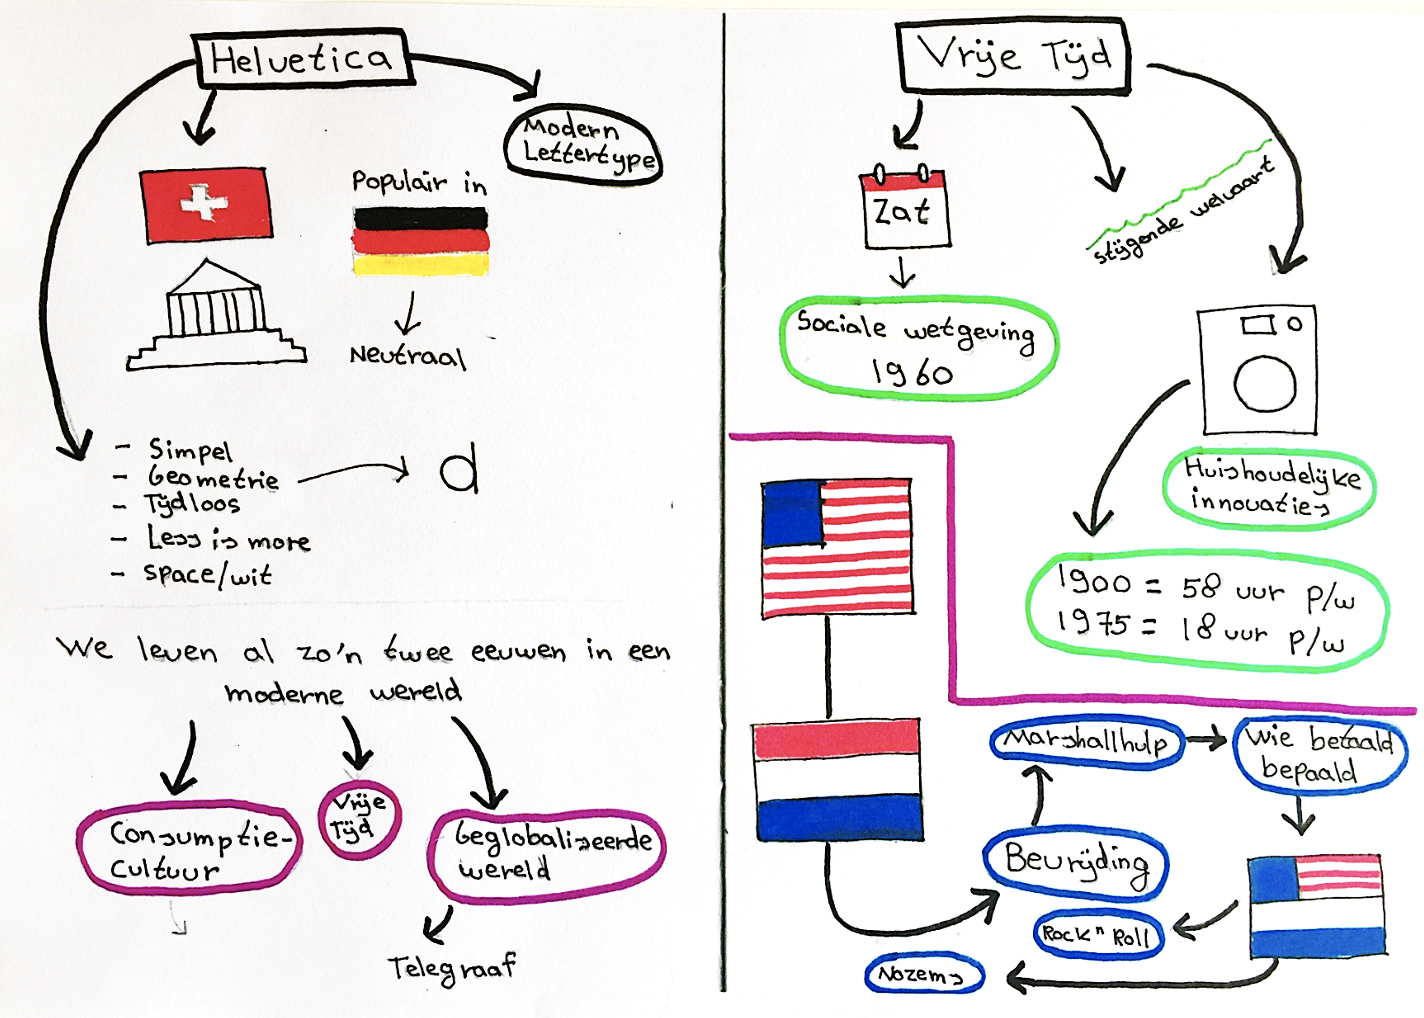 Helvetica
Modern
Lettertype
Populair in
Neutraal
- Simpel
- Geometrie
d
- Tijdloos
- Less is more
- space/wit
We leven al zo'n twee eeuwen in een
moderne wereld
Consumptie-
cultuur
Vrije
Tijd
Geglobaliseerde
wereld
Telegraaf
Vrije Tijd
Zat
Sociale wetgeving
1960
stijgende welvaart
Huishoudelijke
innovaties
1900 = 58 uur p/w
1975 = 18 uur p/w
Marshallhulp
Wie betaald
bepaald
Bevrijding
Rock n Roll
Nozems